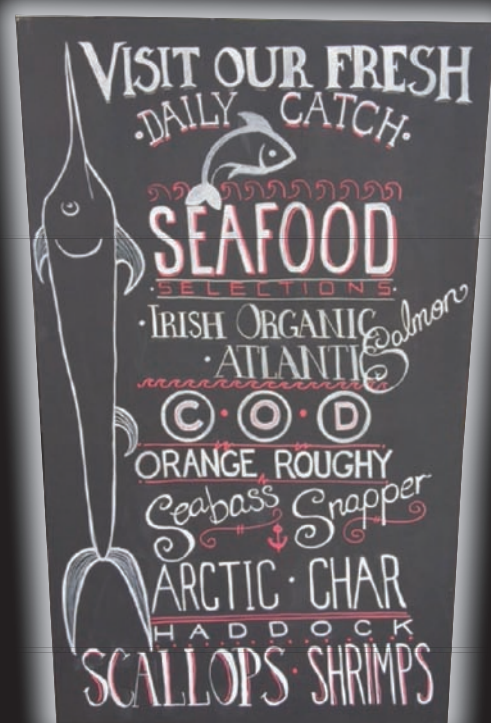 VISIT OUR FRESH
·DAILY CATCH·
SEAFOOD
·SELECTIONS·
·IRISH ORGANIC
Salmon
·ATLANTIC
C·O·D
ORANGE ROUGHY
Seabass Snapper
ARCTIC·CHAR
HADDOCK
SCALLOPS·SHRIMPS